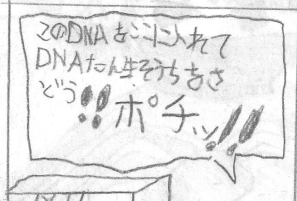 このDNAをここに入れて
DNAたん生そうちをさ
どう!!ポチッ!!